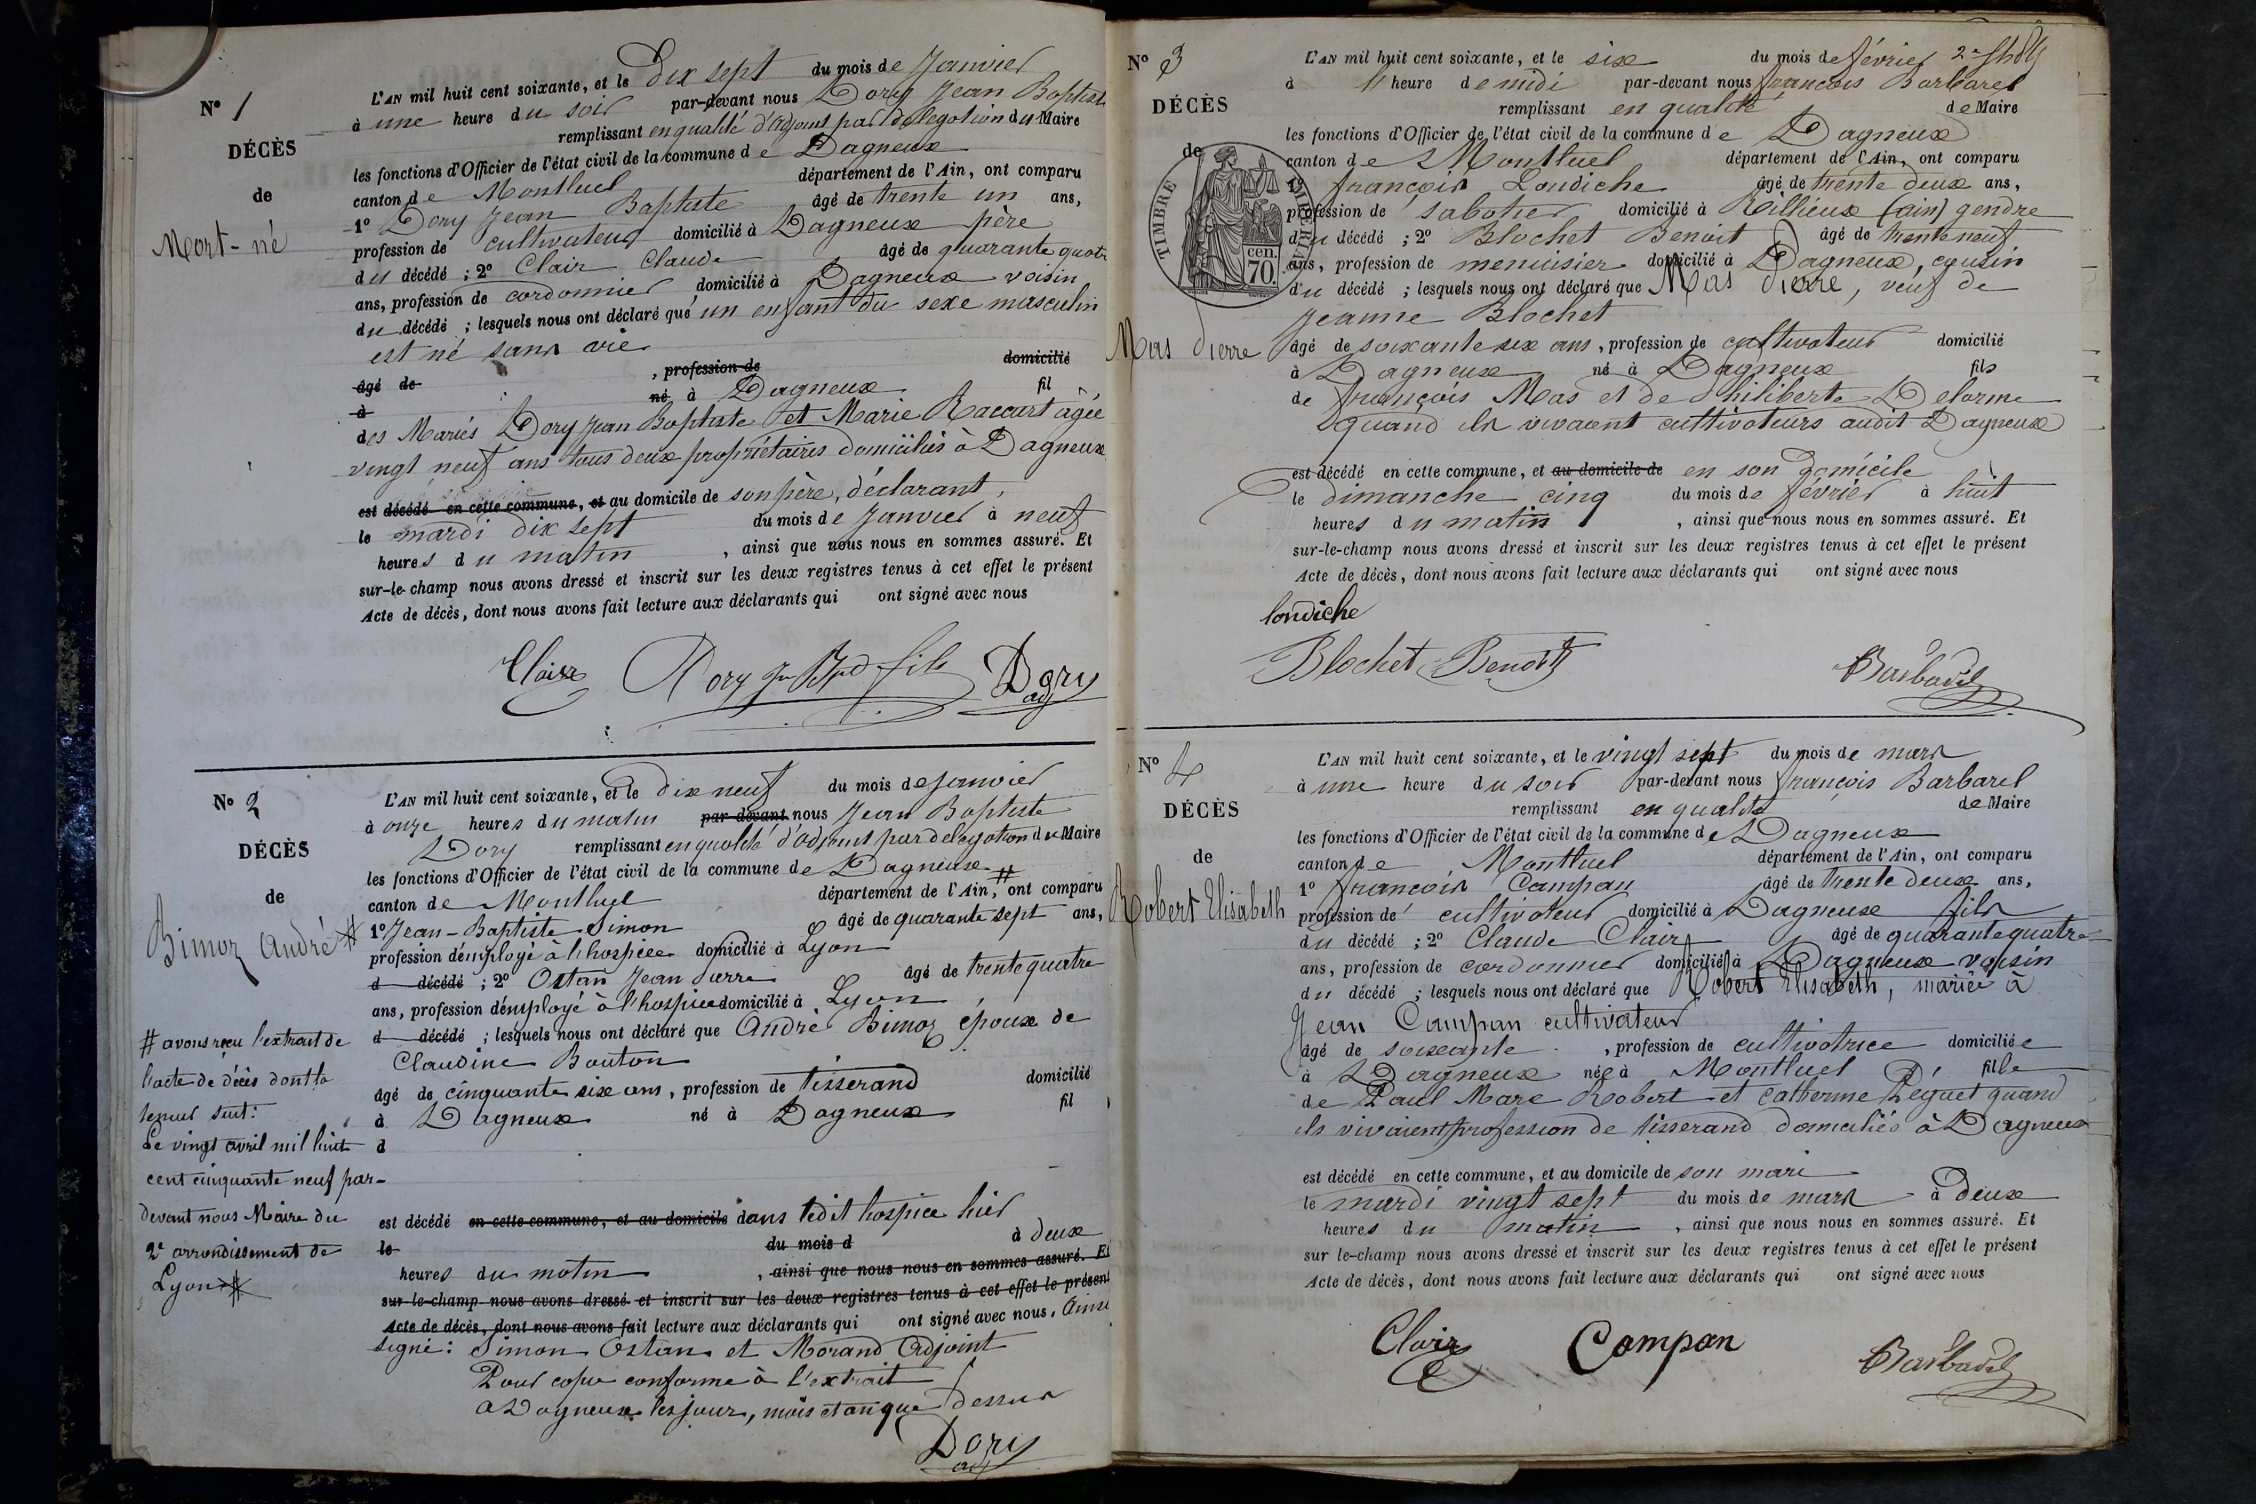 N° 1
DÉCÈS
de
Mort-né
L'AN mil huit cent soixante, et le Dix sept du mois de Janvier
à une heure du soir par-devant nous Dory Jean Baptiste
remplissant en qualité d'adjoint par délégation du Maire
les fonctions d'Officier de l'état civil de la commune de Dagneux
canton de Montluel département de l'Ain, ont comparu
1° Dory Jean Baptiste âgé de trente un ans,
profession de cultivateur domicilié à Dagneux père
du décédé ; 2° Clair Claude âgé de quarante quatre
ans, profession de cordonnier domicilié à Dagneux voisin
du décédé ; lesquels nous ont déclaré que un enfant du sexe masculin
est né sans vie
âgé de , profession de domicilié
à né à Dagneux fil
des Mariés Dory Jean Baptiste et Marie Raccurt âgée
vingt neuf ans tous deux propriétaires domiciliés à Dagneux
est décédé en cette commune, et au domicile de son père, déclarant,
le mardi dix sept du mois de Janvier à neuf
heures du matin , ainsi que nous nous en sommes assuré. Et
sur-le-champ nous avons dressé et inscrit sur les deux registres tenus à cet effet le présent
Acte de décès, dont nous avons fait lecture aux déclarants qui ont signé avec nous
Clair Dory fils Dory
adj
N° 2
DÉCÈS
de
Bimoz André #
# avons reçu l'extrait de
l'acte de décès dont la
teneur suit:
Le vingt avril mil huit
cent cinquante neuf par-
devant nous Maire du
2e arrondissement de
Lyon #
L'AN mil huit cent soixante, et le dix neuf du mois de Janvier
à onze heures du matin par-devant nous Jean Baptiste
Dory remplissant en qualité d'adjoint par délégation du Maire
les fonctions d'Officier de l'état civil de la commune de Dagneux
canton de Montluel département de l'Ain, # ont comparu
1° Jean-Baptiste Simon âgé de quarante sept ans,
profession d'employé à l'hospice domicilié à Lyon
d décédé ; 2° Ostan Jean Pierre âgé de trente quatre
ans, profession d'employé à l'hospice domicilié à Lyon
d décédé ; lesquels nous ont déclaré que André Bimoz époux de
Claudine Bouton
âgé de cinquante six ans, profession de tisserand domicilié
à Dagneux né à Dagneux fil
d
est décédé en cette commune, et au domicile dans ledit hospice hier
le du mois d à deux
heures du matin , ainsi que nous nous en sommes assuré. Et
sur-le-champ nous avons dressé et inscrit sur les deux registres tenus à cet effet le présent
Acte de décès, dont nous avons fait lecture aux déclarants qui ont signé avec nous. Ainsi
signé: Simon Ostan et Morand Adjoint
Pour copie conforme à l'extrait
A Dagneux les jour, mois et an que dessus
Dory
adj
N° 3
DÉCÈS
de
TIMBRE IMPÉRIAL
cen. 70.
Mas Pierre
L'AN mil huit cent soixante, et le six du mois de février
à heure de midi par-devant nous françois Barbarel
remplissant en qualité de Maire
les fonctions d'Officier de l'état civil de la commune de Dagneux
canton de Montluel département de l'Ain, ont comparu
1° françois Londiche âgé de trente deux ans,
profession de sabotier domicilié à Rillieux (ain) gendre
du décédé ; 2° Blochet Benoit âgé de trente neuf
ans, profession de menuisier domicilié à Dagneux, cousin
du décédé ; lesquels nous ont déclaré que Mas Pierre, veuf de
Jeanne Blochet
âgé de soixante six ans, profession de cultivateur domicilié
à Dagneux né à Dagneux fils
de françois Mas et de Philiberte Delorme
quand ils vivaient cultivateurs audit Dagneux
est décédé en cette commune, et au domicile de en son domicile
le dimanche cinq du mois de février à huit
heures du matin , ainsi que nous nous en sommes assuré. Et
sur-le-champ nous avons dressé et inscrit sur les deux registres tenus à cet effet le présent
Acte de décès, dont nous avons fait lecture aux déclarants qui ont signé avec nous
londiche
Blochet Benoit Barbarel
N° 4
DÉCÈS
de
Robert Elisabeth
L'AN mil huit cent soixante, et le vingt sept du mois de mars
à une heure du soir par-devant nous françois Barbarel
remplissant en qualité de Maire
les fonctions d'Officier de l'état civil de la commune de Dagneux
canton de Montluel département de l'Ain, ont comparu
1° françois Campan âgé de trente deux ans,
profession de cultivateur domicilié à Dagneux fils
du décédé ; 2° Claude Clair âgé de quarante quatre
ans, profession de cordonnier domicilié à Dagneux voisin
du décédé ; lesquels nous ont déclaré que Robert Elisabeth, mariée à
Jean Campan cultivateur
âgé de soixante , profession de cultivatrice domiciliée
à Dagneux née à Montluel fille
de Paul Marc Robert et Catherine Péguet quand
ils vivaient profession de tisserand domiciliés à Dagneux
est décédé en cette commune, et au domicile de son mari
le mardi vingt sept du mois de mars à deux
heures du matin , ainsi que nous nous en sommes assuré. Et
sur le-champ nous avons dressé et inscrit sur les deux registres tenus à cet effet le présent
Acte de décès, dont nous avons fait lecture aux déclarants qui ont signé avec nous
Clair Campan Barbarel